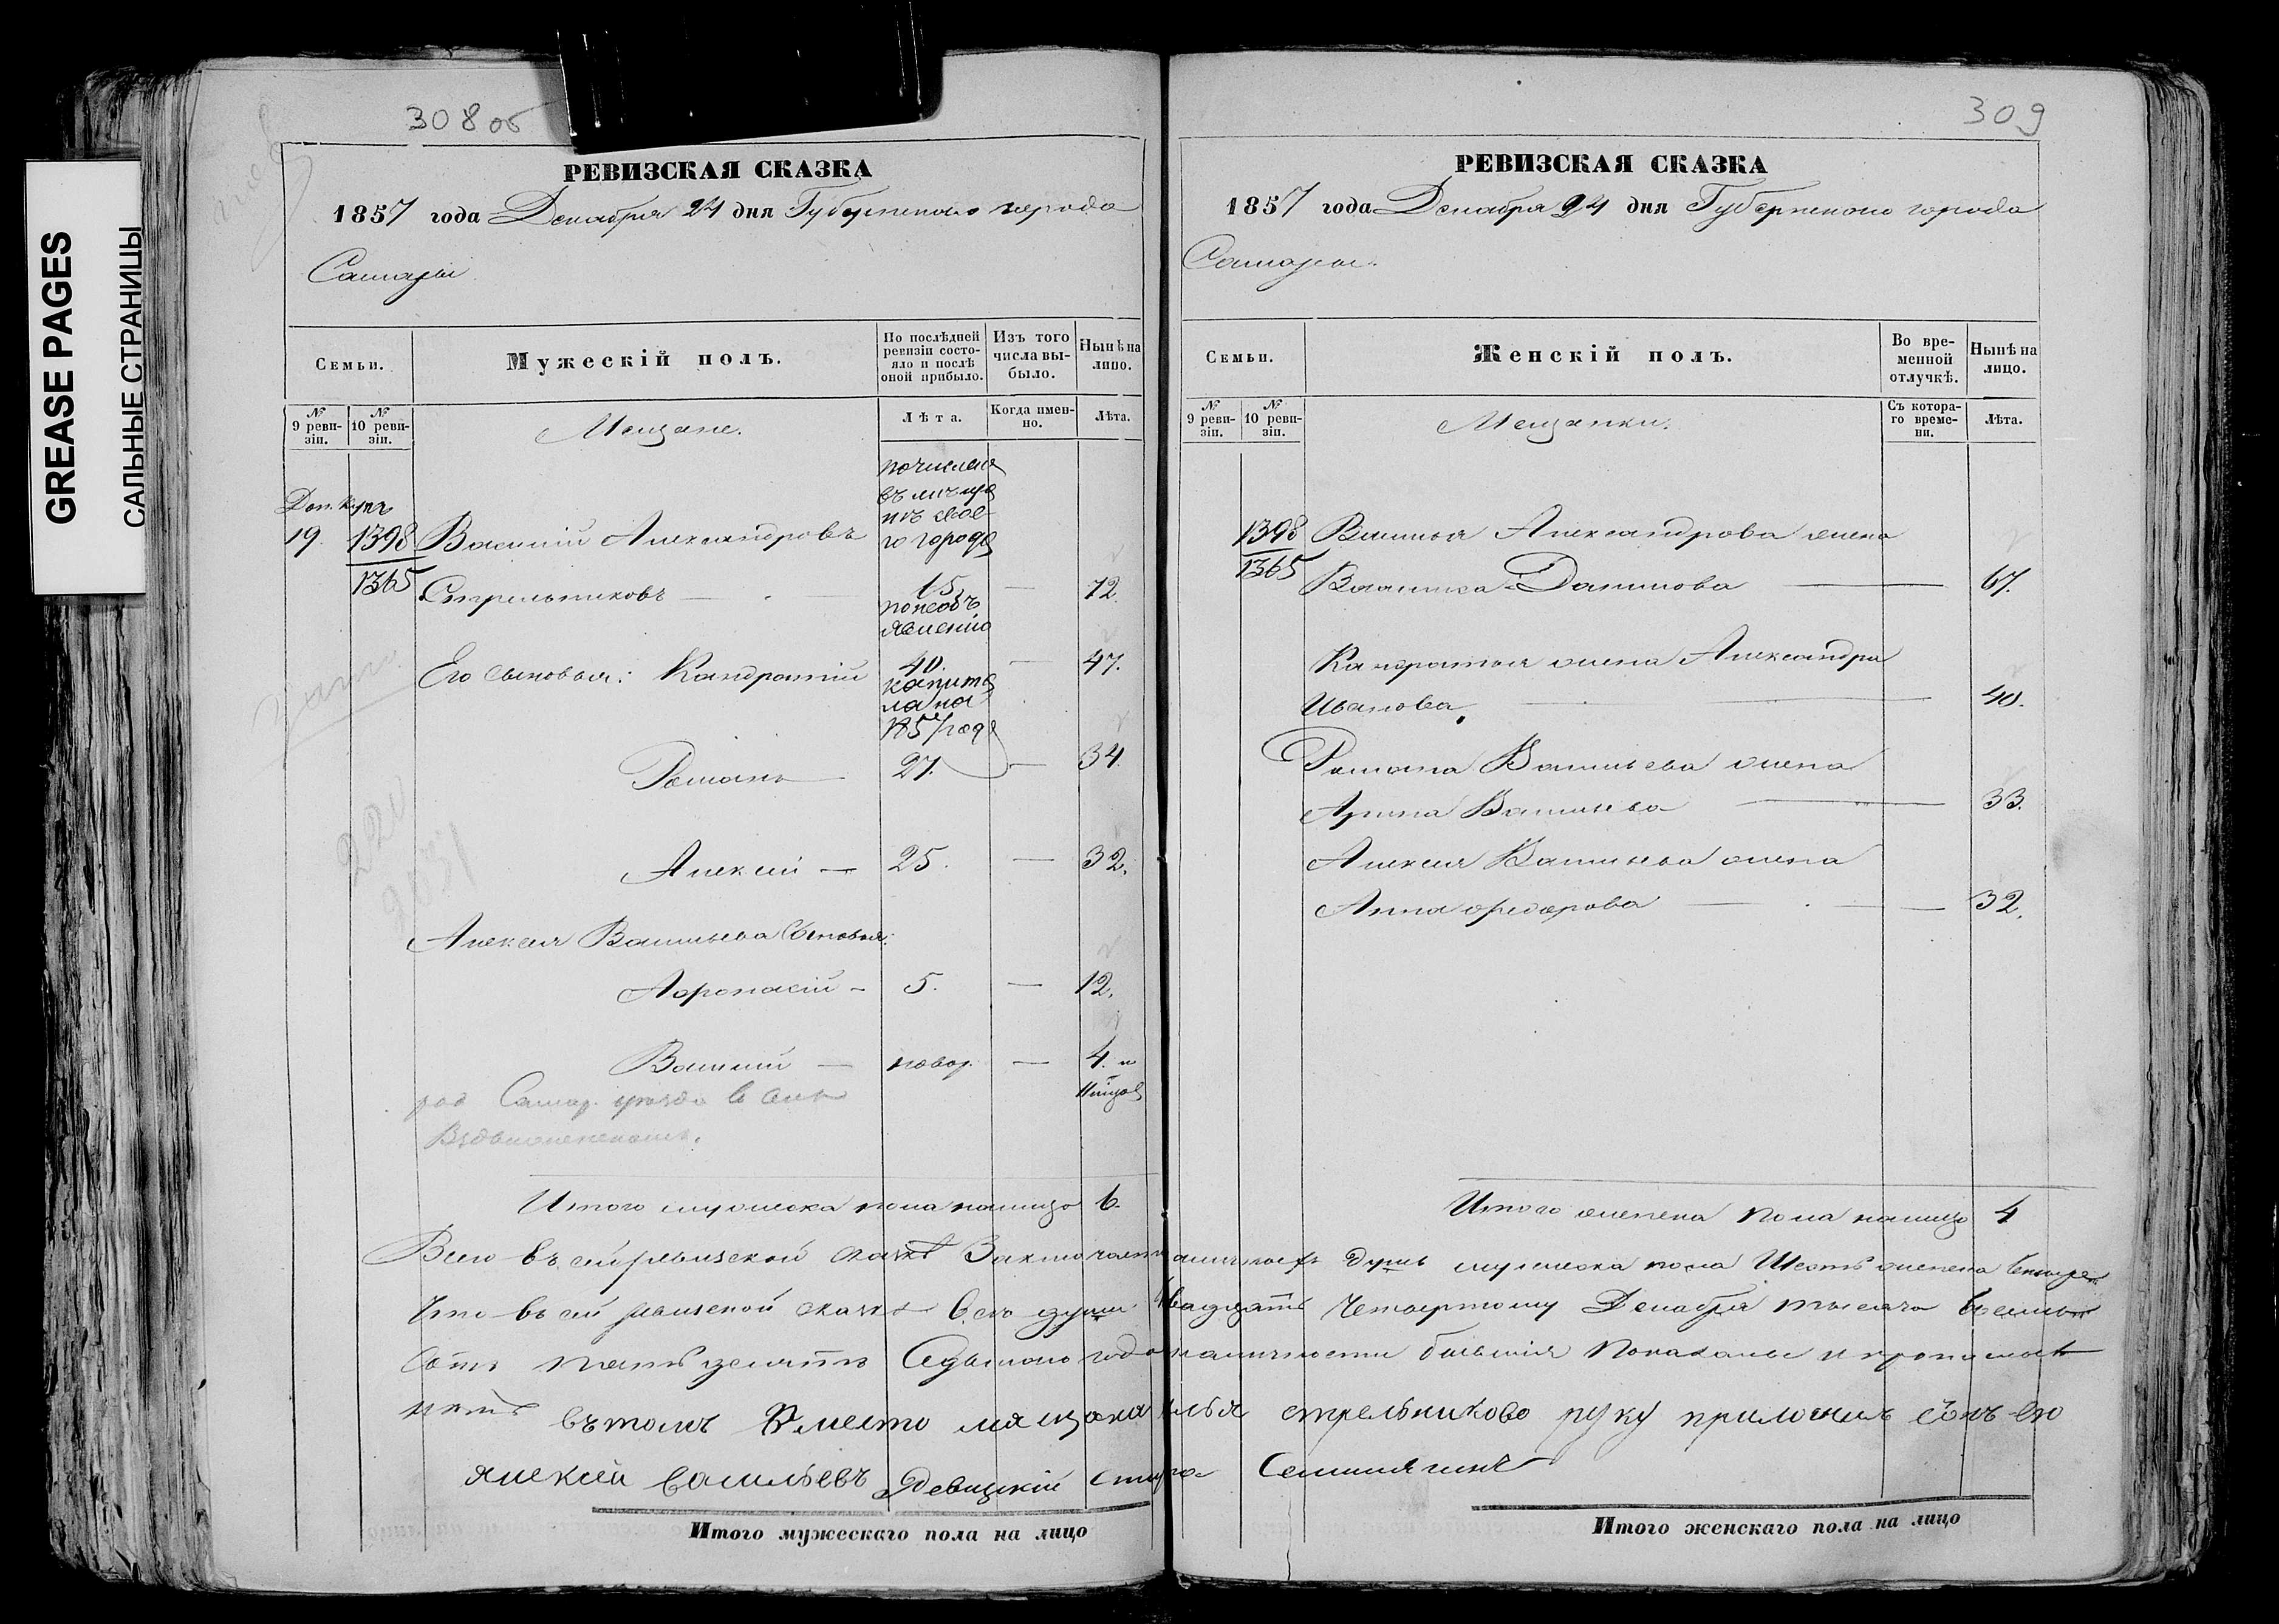 GREASE PAGES
САЛЬНЫЕ СТРАНИЦЫ
308 об
РЕВИЗСКАЯ СКАЗКА
1857 года Декабря 24 дня Губернскаго города
Самары
Семьи.
Мужескій полъ.
По послѣдней ревизіи состояло и послѣ оной прибыло.
Изъ того числа выбыло.
Нынѣ на лицо.
№ 9 ревизіи.
№ 10 ревизіи.
Мещане.
Лѣта.
Когда именно.
Лѣта.
Доп. Купц
19. 1398 Василій Александровъ
1365 Стрельниковъ — 15 — 72.
по необъ
явленію
Его сыновья: Кандратій 40. — 47.
капита
ла на
1857 годъ
Романъ — 27. — 34.
Алексѣй — 25. — 32.
Алексея Васильева Сыновья:
Афонасій — 5. — 12.
Василій — новор. — 4. и
род Самар. уезда в селе
Итого мужеска пола налицо 6.
Итого мужескаго пола на лицо
309
РЕВИЗСКАЯ СКАЗКА
1857 года Декабря 24 дня Губернскаго города
Самары.
Семьи.
Женскій полъ.
Во временной отлучкѣ.
Нынѣ на лицо.
№ 9 ревизіи.
№ 10 ревизіи.
Мещанки.
Съ котораго времени.
Лѣта.
1398 Василья Александрова жена
1365 Василиса Данилова — 67.
Кандратья жена Александра
Иванова — 40.
Романа Васильева жена
Арина Васильева — 33.
Алексея Васильева жена
Анна Федорова — 32.
Итого женска пола налицо 4
Всего въ сей ревизской сказкѣ Заключается наличныхъ душъ мужеска пола Шесть женска четыре
Что въ сей ревизской сказке всѣ души Двадцать Четвертому Декабря тысяча восемь
сотъ пятьдесятъ Седьмаго года наличности бывшія Показаны и прописныхъ
нѣтъ въ томъ Вместо мещанина стрельникова руку приложилъ сынъ его
Алексей Васильевъ
Итого женскаго пола на лицо